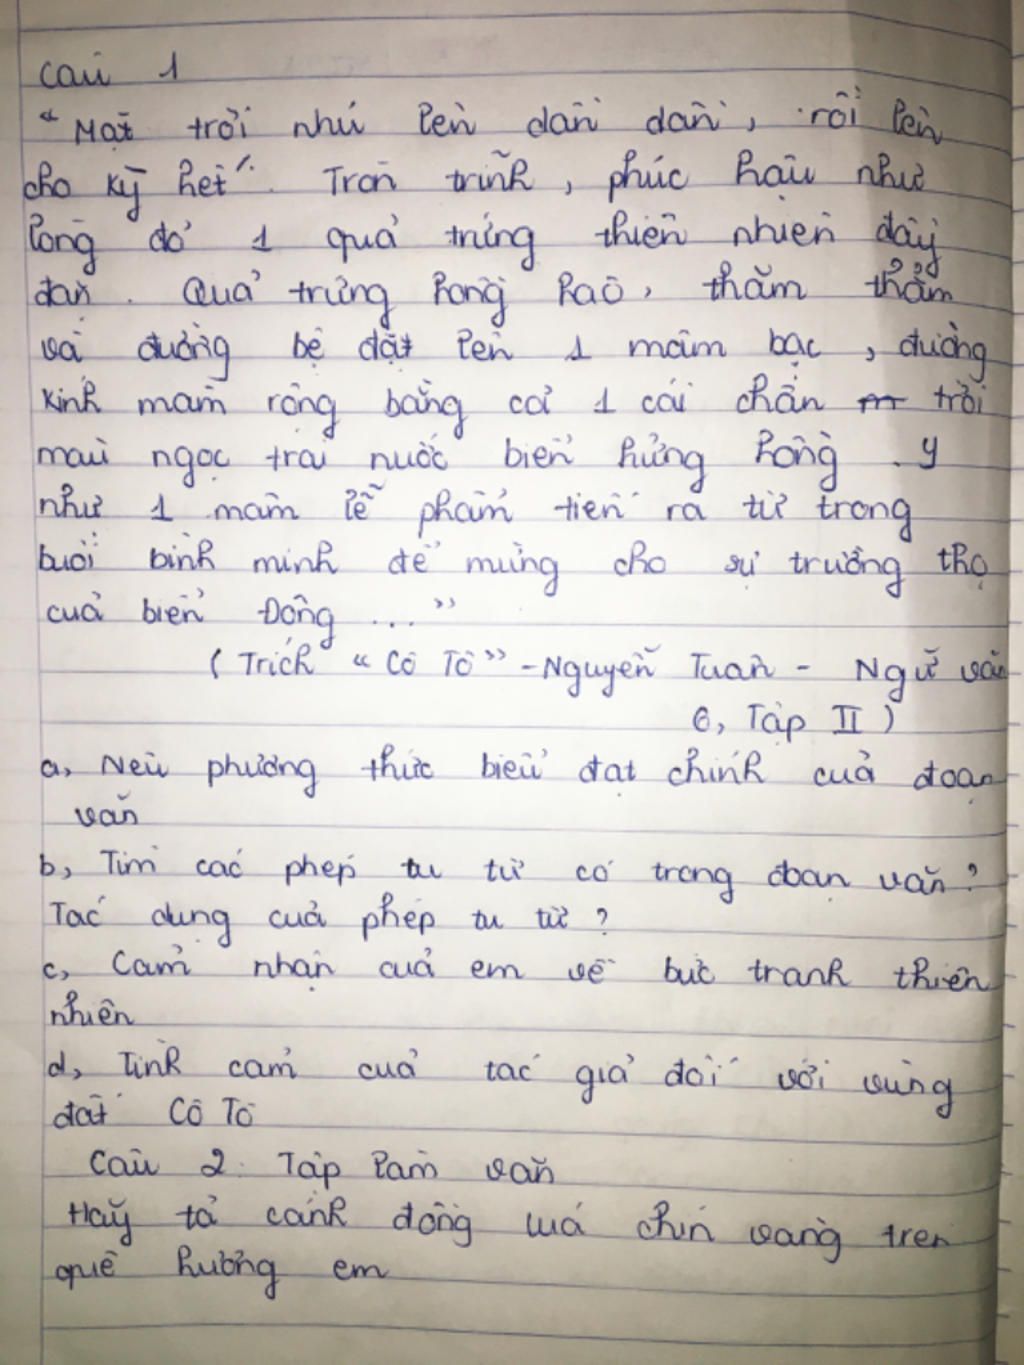 Câu 1
“Mặt trời nhú lên dần dần, rồi lên
cho kỳ hết”. Tròn trĩnh, phúc hậu như
lòng đỏ 1 quả trứng thiên nhiên đầy
đặn. Quả trứng hồng hào, thăm thẳm
và đường bệ đặt lên 1 mâm bạc, đường
kính mâm rộng bằng cả 1 cái chân trời
màu ngọc trai nước biển hửng hồng. Y
như 1 mâm lễ phẩm tiến ra từ trong
buổi bình minh để mừng cho sự trường thọ
của biển Đông ...”
(Trích “Cô Tô” - Nguyễn Tuân - Ngữ văn
6, Tập II)
a, Nêu phương thức biểu đạt chính của đoạn
văn
b, Tìm các phép tu từ có trong đoạn văn?
Tác dụng của phép tu từ?
c, Cảm nhận của em về bức tranh thiên
nhiên
d, Tình cảm của tác giả đối với vùng
đất Cô Tô
Câu 2. Tập làm văn
Hãy tả cánh đồng luá chín vàng trên
quê hương em